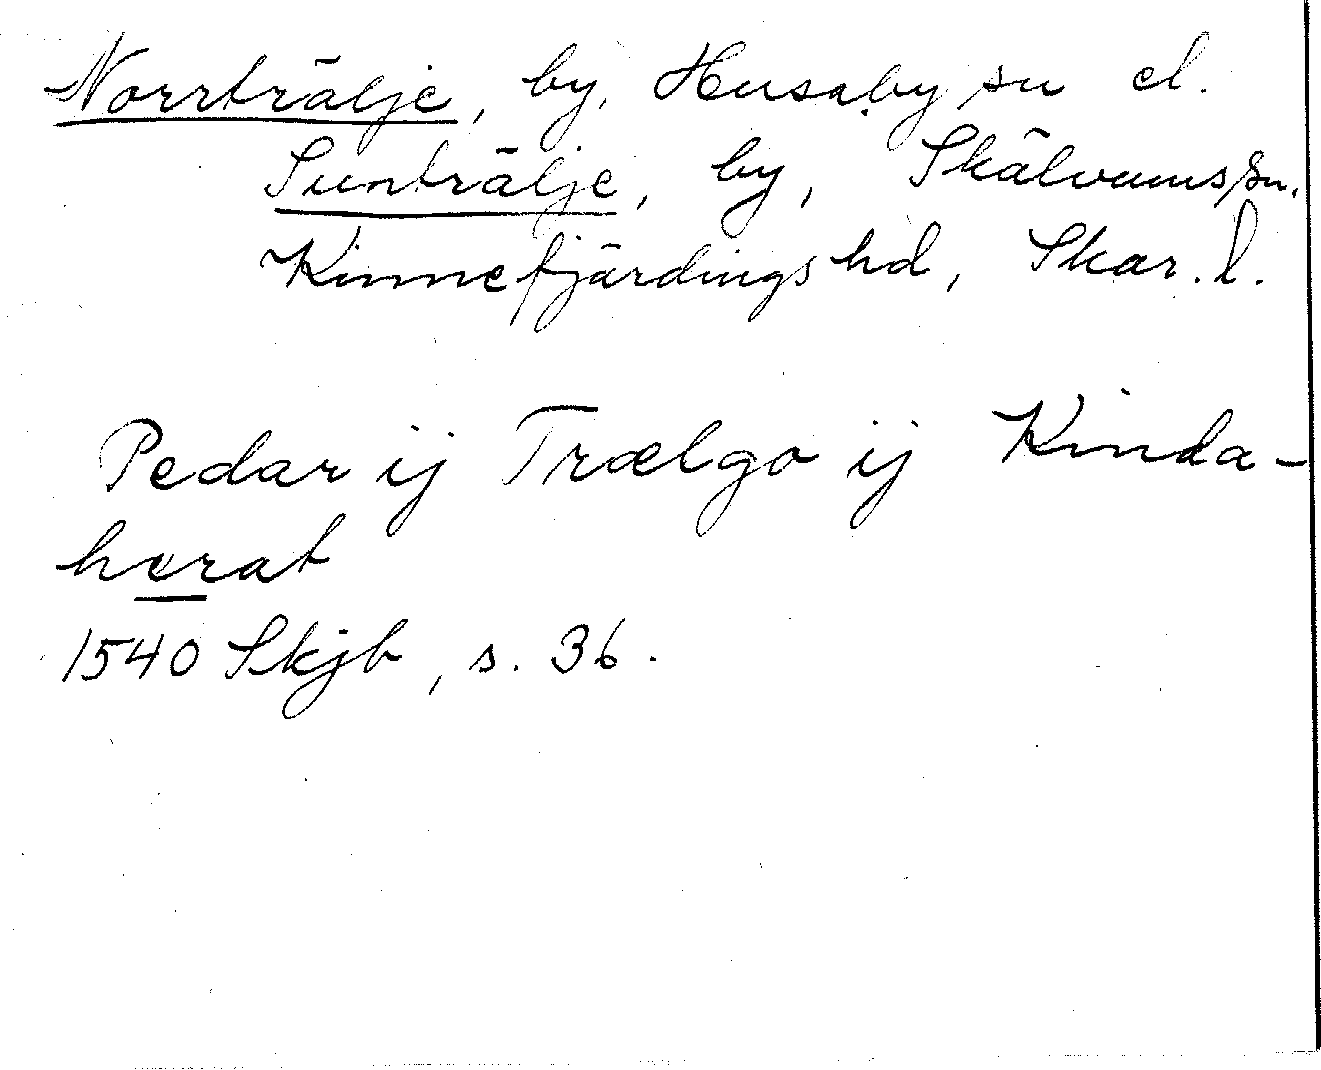 Norrträlje, by, Husaby sn el.
Sunträlje, by, Skälvums sn.
Kinnefjärdings hd, Skar. l.
Pedar ij Trælgo ij Kinda-
herat
1540 Skjb, s. 36.